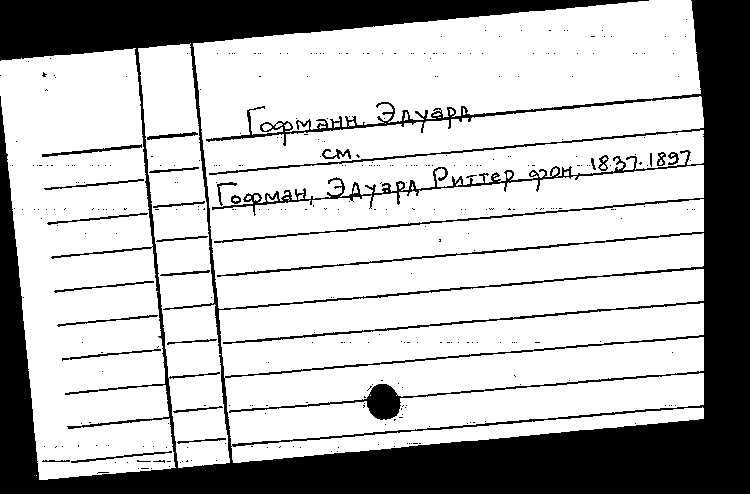 Гофманн, Эдуард
см.
Гофман, Эдуард Риттер фон, 1837-1897